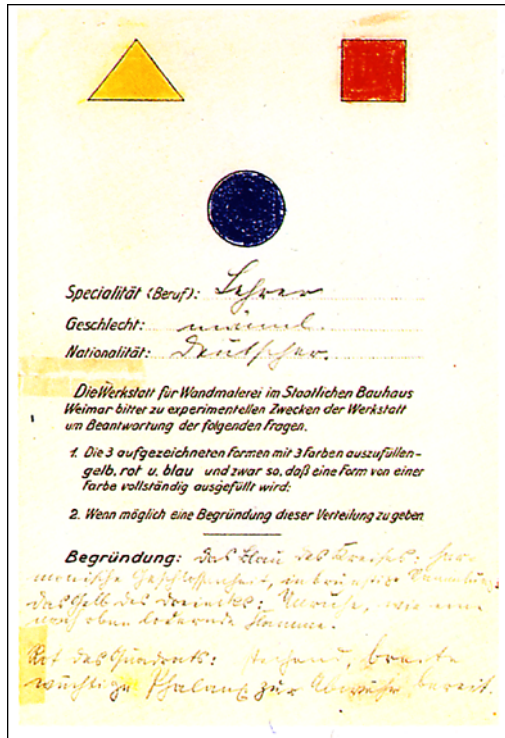 Specialität (Beruf): Lehrer
Geschlecht: männl.
Nationalität: Deutscher.
Die Werkstatt für Wandmalerei im Staatlichen Bauhaus
Weimar bittet zu experimentellen Zwecken der Werkstatt
um Beantwortung der folgenden Fragen.
1. Die 3 aufgezeichneten Formen mit 3 Farben auszufüllen-
gelb, rot u. blau und zwar so, daß eine Form von einer
Farbe vollständig ausgefüllt wird:
2. Wenn möglich eine Begründung dieser Verteilung zu geben
Begründung: Das Blau des Kreises: har-
monische Geschlossenheit, inbrünstige
das Gelb des Dreiecks: Unruhe, wie eine
nach oben lodernde Flamme.
Rot des Quadrats: stehend, breite
wuchtige Phalanx zur Abwehr bereit.